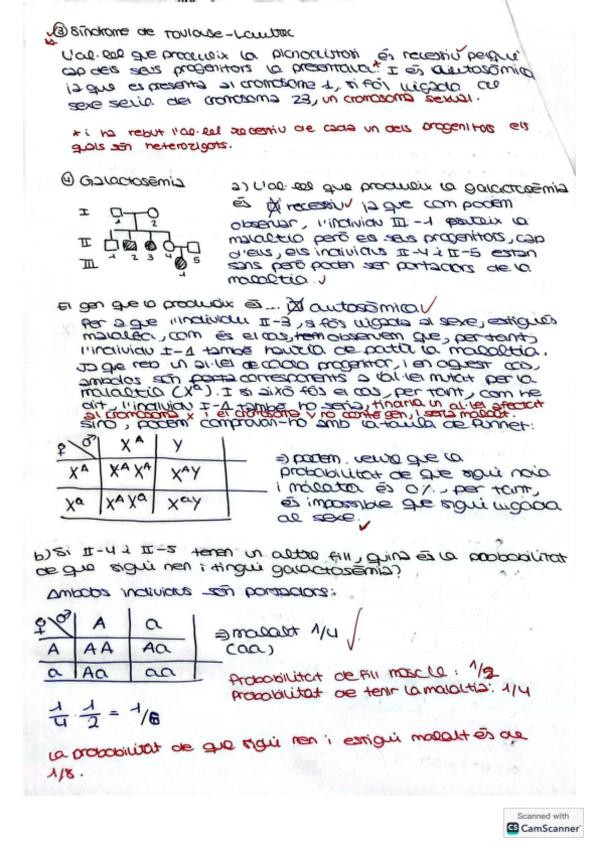 ③ Síndrome de Toulouse-Lautrec
L'al·lel que produeix la picnodistosi és recessiu perquè
cap dels seus progenitors la presentava.* I és autosòmica
ja que es presenta al cromosoma 1, si fós lligada al
sexe seria del cromosoma 23, un cromosoma sexual.
* i ha rebut l'al·lel recessiu de cada un dels progenitors els
quals són heterozigots.
④ Galactosèmia
a) L'al·lel que produeix la galactosèmia
és recessiu ja que com podem
observar, l'individu III-1 pateix la
malaltia però els seus progenitors, cap
d'ells, els individus II-4 i II-5 estan
sans però poden ser portadors de la
malaltia.
I 1 2
II 1 2 3 4 5
III 1
El gen que la produeix és... autosòmica
Per a que l'individu II-3, si fós lligada al sexe, estigués
malalt, com és el cas, observem que, per tant,
l'individu I-1 també hauria de patir la malaltia.
Ja que rep un al·lel de cada progenitor, i en aquest cas,
ambdós són corresponents a l'al·lel mutat per la
malaltia (Xᵃ). I si això fós el cas, per tant, com he
dit, l'individu I-1 també ho seria, tindria un al·lel afectat
al cromosoma x i el cromosoma y no conté gen, i seria malalt.
Sinó, podem comprovar-ho amb la taula de Punnet:
♀ ♂ Xᴬ Y
Xᴬ XᴬXᴬ XᴬY
Xᵃ XᴬXᵃ XᵃY
⇒ podem veure que la
probabilitat de que sigui noia
i malalta és 0%, per tant,
és impossible que sigui lligada
al sexe.
b) Si II-4 i II-5 tenen un altre fill, quina és la probabilitat
de que sigui nen i tingui galactosèmia?
Ambdos individus són portadors:
♀ ♂ A a
A AA Aa
a Aa aa
⇒ malalt 1/4
(aa)
Probabilitat de fill mascle: 1/2
Probabilitat de tenir la malaltia: 1/4
1/4 · 1/2 = 1/8
La probabilitat de que sigui nen i estigui malalt és de
1/8.
Scanned with
CS CamScanner